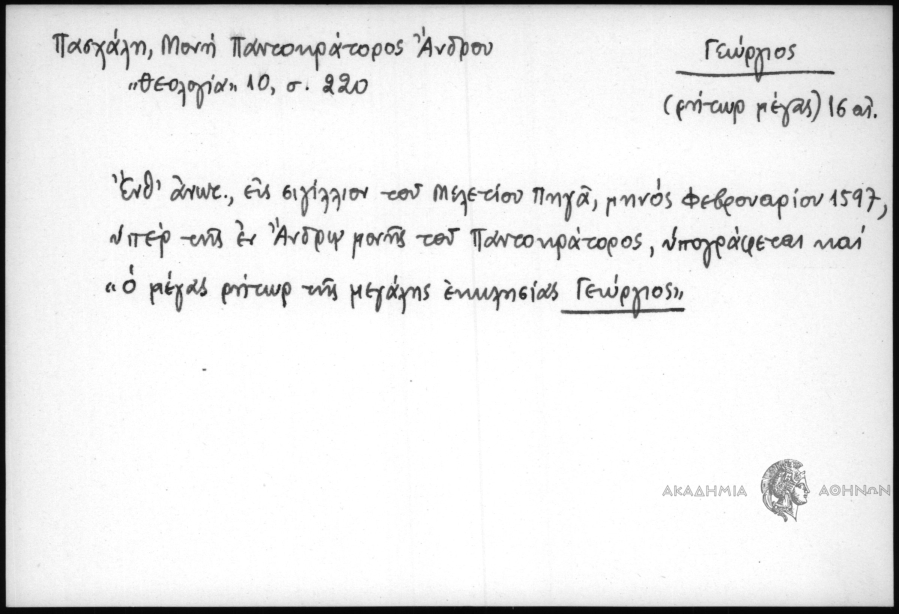 Πασχάλη, Μονή Παντοκράτορος Ἄνδρου
«Θεολογία» 10, σ. 220
Γεώργιος
(ρήτωρ μέγας) 16 αἰ.
Ἐνθ' ἀνωτ., εἰς σιγίλλιον τοῦ Μελετίου Πηγᾶ, μηνός Φεβρουαρίου 1597,
ὑπέρ τῆς ἐν Ἄνδρῳ μονῆς τοῦ Παντοκράτορος, ὑπογράφεται καί
«ὁ μέγας ρήτωρ τῆς μεγάλης ἐκκλησίας Γεώργιος»
ΑΚΑΔΗΜΙΑ ΑΘΗΝΩΝ